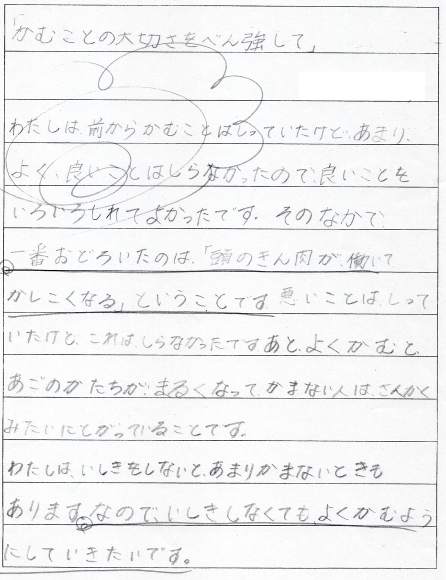 「かむことの大切さをべん強して」
わたしは、前からかむことはしっていたけど、あまり、
よく、良いことはしらなかったので、良いことを
いろいろしれてよかったです。そのなかで、
一番おどろいたのは、「頭のきん肉が、働いて
かしこくなる」ということです。悪いことは、しって
いたけど、これは、しらなかったです。あと、よくかむと、
あごのかたちが、まるくなって、かまない人は、さんかく
みたいにとがっていることです。
わたしは、いしきをしないと、あまりかまないときも
あります。なので、いしきしなくても、よくかむよう
にしていきたいです。